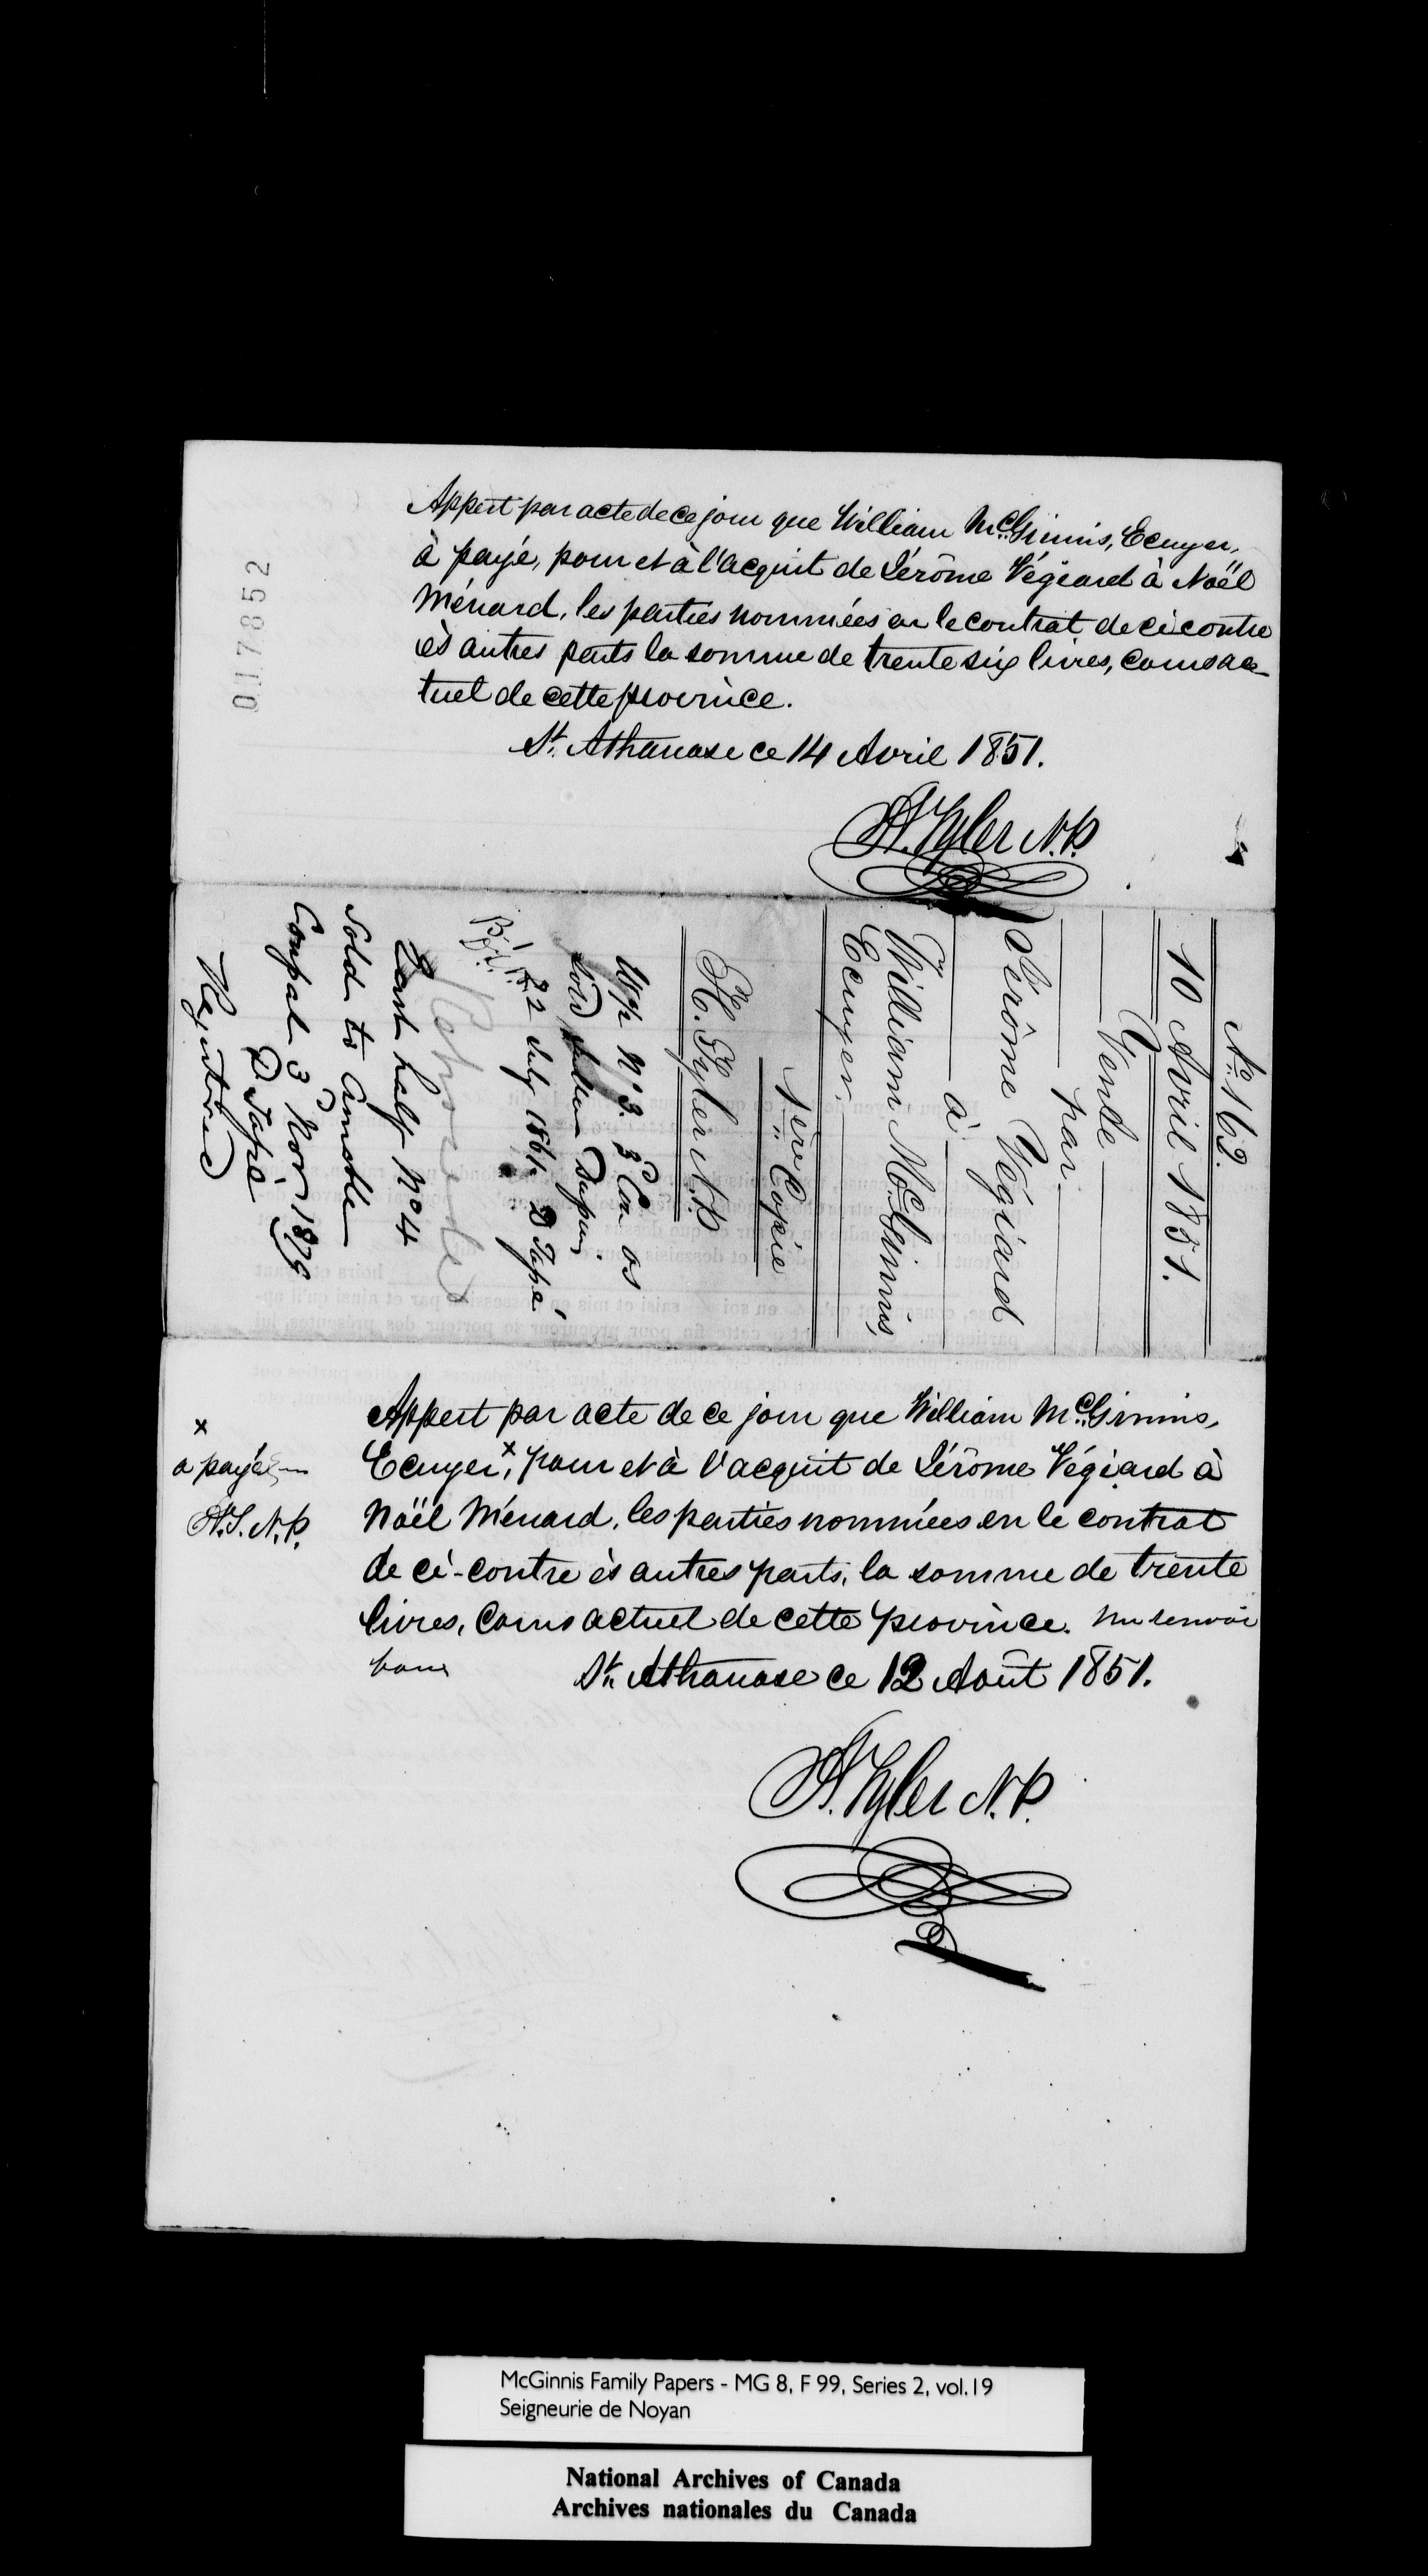 017852
Appert par acte de ce jour que William McGinnis, Ecuyer,
à payé, pour et à l'acquit de Jérôme Végiard à Noël
Ménard, les parties nommées en le contrat de ci contre
ès autres parts la somme de trente six livres, cours ac
tuel de cette province.
St. Athanase ce 14 Avril 1851.
H. Tyler N.P.
No. 162.
10 Avril 1851.
Vente
par
Jérôme Végiard
à
William McGinnis,
Ecuyer.
1ère Copie
H. Tyler N.P.
No 3. 3 Con as
sold
22 July 1861 D Tapé
East half No 4
Sold to
3 Nov 1879
D Tapé
Registered
Appert par acte de ce jour que William McGinnis,
Ecuyer,x pour et à l'acquit de Jérôme Végiard à
Noël Ménard, les parties nommées en le contrat
de ci-contre ès autres parts, la somme de trente
livres, cours actuel de cette province. Un renvoi
bon
x
a payé
H.T. N.P.
St. Athanase ce 12 Août 1851.
H. Tyler N.P.
McGinnis Family Papers - MG 8, F 99, Series 2, vol.19
Seigneurie de Noyan
National Archives of Canada
Archives nationales du Canada